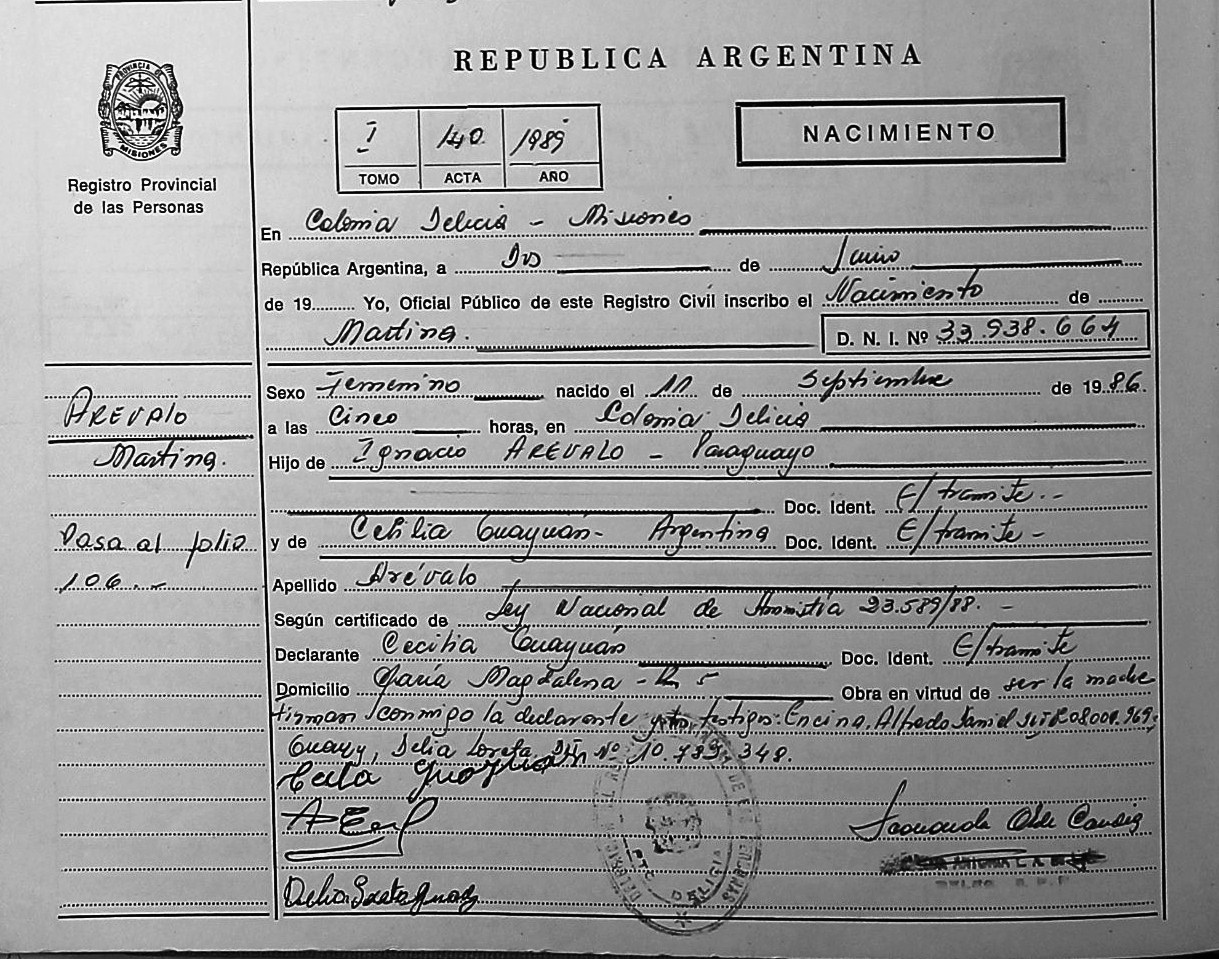 REPUBLICA ARGENTINA
PROVINCIA DE
MISIONES
Registro Provincial
de las Personas
I 140 1989
TOMO ACTA AÑO
NACIMIENTO
En Colonia Delicia - Misiones
República Argentina, a Dos de Junio
de 19 Yo, Oficial Público de este Registro Civil inscribo el Nacimiento de
Martina. D. N. I. Nº 33.938.664
Sexo Femenino nacido el 11 de Septiembre de 1986.
a las Cinco horas, en Colonia Delicia
Hijo de Ignacio AREVALO - Paraguayo
Doc. Ident. E/tramite.-
y de Cecilia Guayuán- Argentina Doc. Ident. E/tramite -
Apellido Arévalo
Según certificado de Ley Nacional de Amnistía 23.589/88. -
Declarante Cecilia Guayuán Doc. Ident. E/tramite
Domicilio María Magdalena - Obra en virtud de ser la madre
firman conmigo la declarante y testigos: Encina, Alfredo Daniel
Delia Loreta Nº 10.783.348.
AREVALO
Martina.
Pasa al folio
106.-
DELICIA